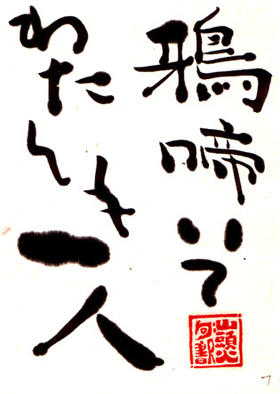 鴉啼いて
わたしも一人
山頭火
句影
7